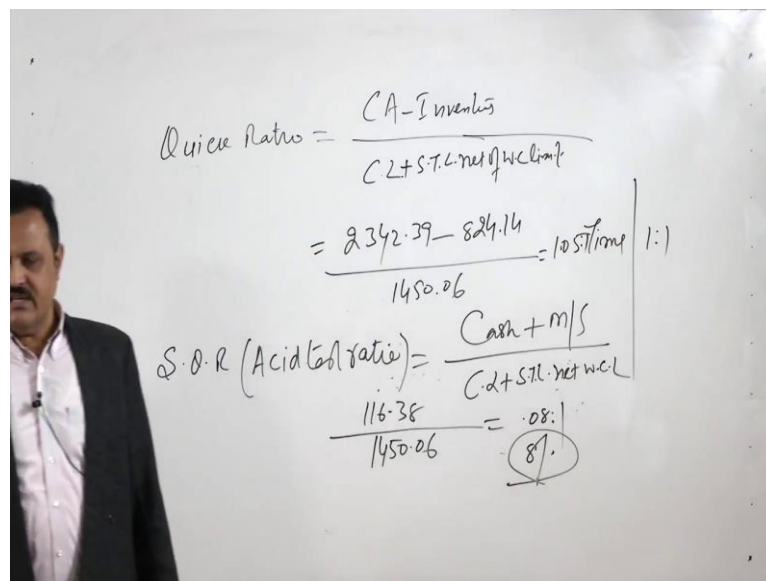 Quick Ratio = CA - Inventories
C.L + S.T.L. net of w.c limit
= 2342.39 - 824.14
1450.06
= 1.05 Time | 1:1
S.Q.R (Acid test ratio) = Cash + M/S
C.L + S.T.L. net w.c.L
116.38
1450.06
= .08:1
8%